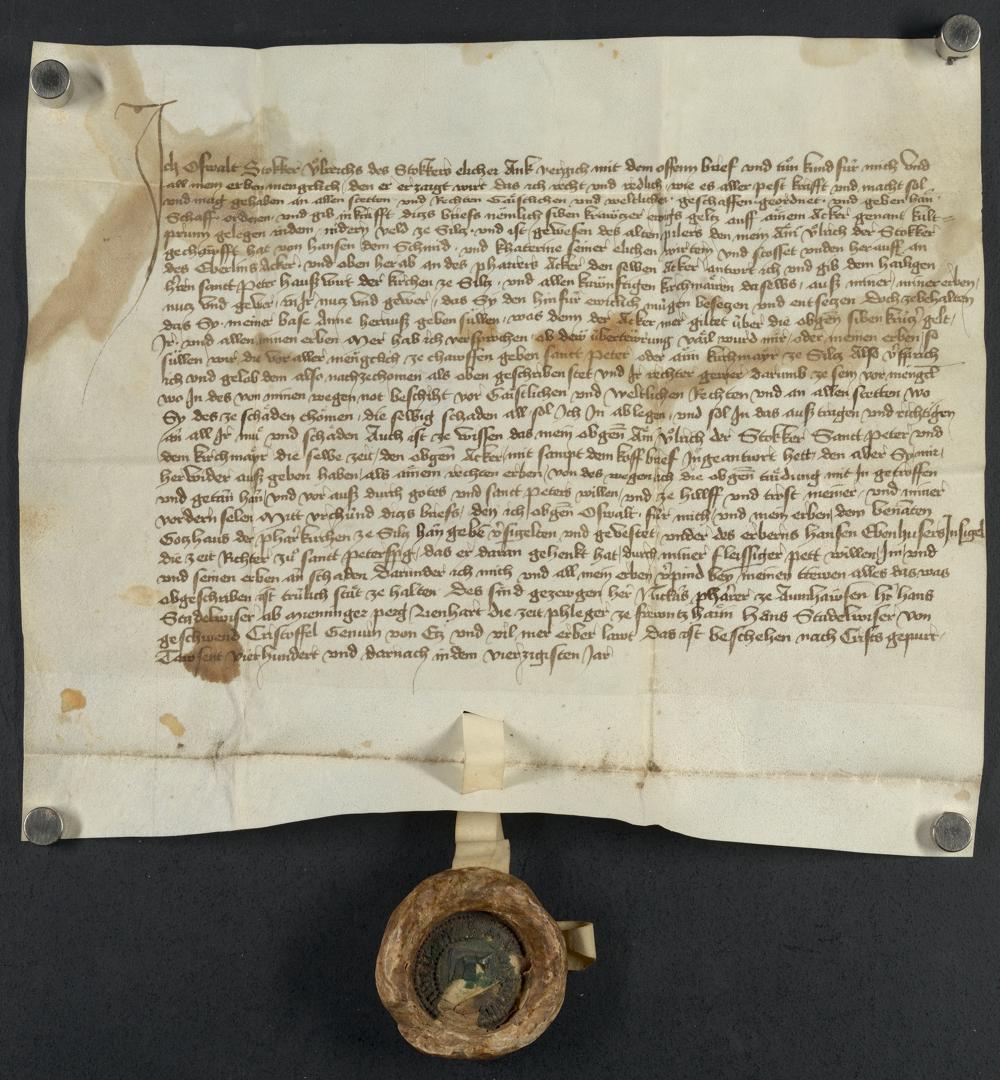 Ich Oswalt Stokker Ulreichs des Stokkers elicher Ank vergich mit dem offenn brief und tůn kund fur mich und
all mein erben mengclich den er erzaigt wirt das ich recht und redlich wie es aller pest krafft und macht sol
und mag gehaben an allen stetten und Rechten Gaistlichen und weltlichen geschaffen geordnet und geben han
Schaff ordenen und gib in krafft dizs briefs nemlich siben krawczer ewigs geltz auff ainem Acker genant kilt=
prunn gelegen in dem nidern veld ze Silcz und ist gewesen des alten pilers den mein Än Ulrich der Stokker
gechaufft hat von hansen dem Schmid und khaterine seiner elichen wirtein und stosset unden herauff an
des Eberlins Acker und oben herab an des pharrers Acker den selben Acker antwort ich und gib dem hailigen
hern sanct peter hauswirt der kirchen ze Silcz und allen kunfftigen kirchmairen daselbs aus miner miner erben
nucz und gewer in Ir nucz und gewer das Sy den hinfur ewiclich mugen beseczen und entseczen Doch ze behalten
das Sy meiner base Anne herausz geben sullen was denn der Acker mer giltet uber die obgen siben krucz gelt
Ir und allen iren erben Mer hab ich versprochen ob dew ubertewrung vail wurd mir oder meinen erben so
sullen wir die vor aller mengclich ze chawffen geben sanct Peter oder aim kirchmayr ze Silcz Also versprich
ich und gelob dem also nachzechomen als oben geschriben stet und Ir rechter gewer darumb ze sein vor mengcl
wo In des von minen wegen not beschiht vor Gaistlichen und weltlichen Rechten und an allen stetten wo
Sy des ze schaden chomen die selbig schaden all sol Ich In ablegen und sol In das ausz tragen und richtigen
an all Ir mue und schaden Auch ist ze wissen das mein obgen Än Ulrich der Stokker Sanct Peter und
dem kirchmayr die selbe zeit den obgen Acker mit sampt dem koff brief Ingeantwort hett den aber Sy mir
herwider ausz geben haben als ainem rechten erben von des wegen ich die obgen tading mit In getroffen
und getan han und vor ausz durch gotes und sanct Peters willen und ze hillff und trost meiner und miner
vordern selen Mitt urchund dizs briefs den ich obgen Oswalt fur mich und mein erben dem benanten
Goczhaus der pharrkirchen ze Silcz han geben versigelten und gevestet under des erberns hansen Ebenhusers Insigel
die zeit Richter zu sanct petersperg das er daran gehenkt hat durch miner fleissiger pett willen Im und
und seinen erben an schaden Darunder ich mich und all mein erben verpind bey meinen trewen alles das was
obgeschriben ist trulich stat ze halten Des sind gezewgen her Luckas pharrer ze Aumhawsen hr hans
Stadelwiser ab Mieminger perg Lienhart die zeit phleger ze frewntz haim Hans Studelwiser von
geschwend Cristoffel Genuin von Ecz und vil mer erber lawt Das ist beschehen nach Crists gepurt
Tawsent vierhundert und darnach in dem vierzigisten Jar